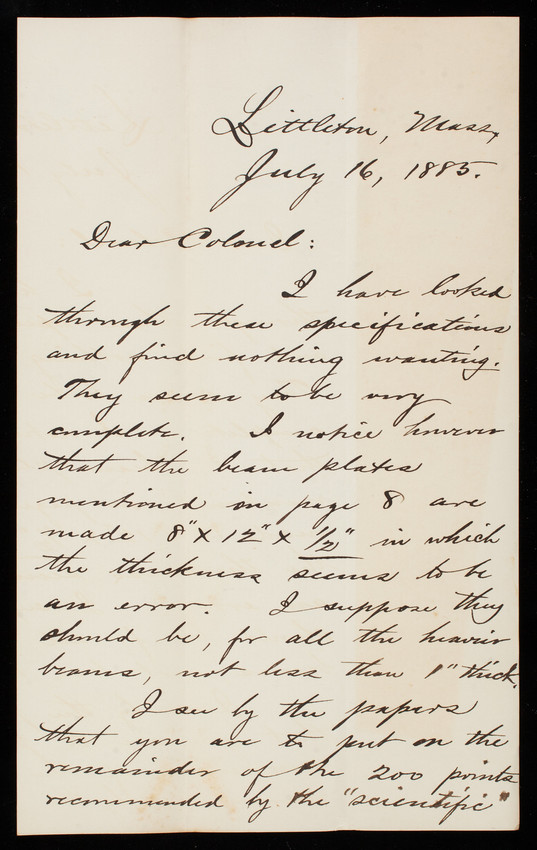 Littleton, Mass,
July 16, 1885.
Dear Colonel:
I have looked
through these specifications
and find nothing wanting.
They seem to be very
complete. I notice however
that the beam plates
mentioned on page 8 are
made 8" x 12" x 1/2" in which
the thickness seems to be
an error. I suppose they
should be, for all the heavier
beams, not less than 1" thick.
I see by the papers
that you are to put on the
remainder of the 200 points
recommended by the "scientific"